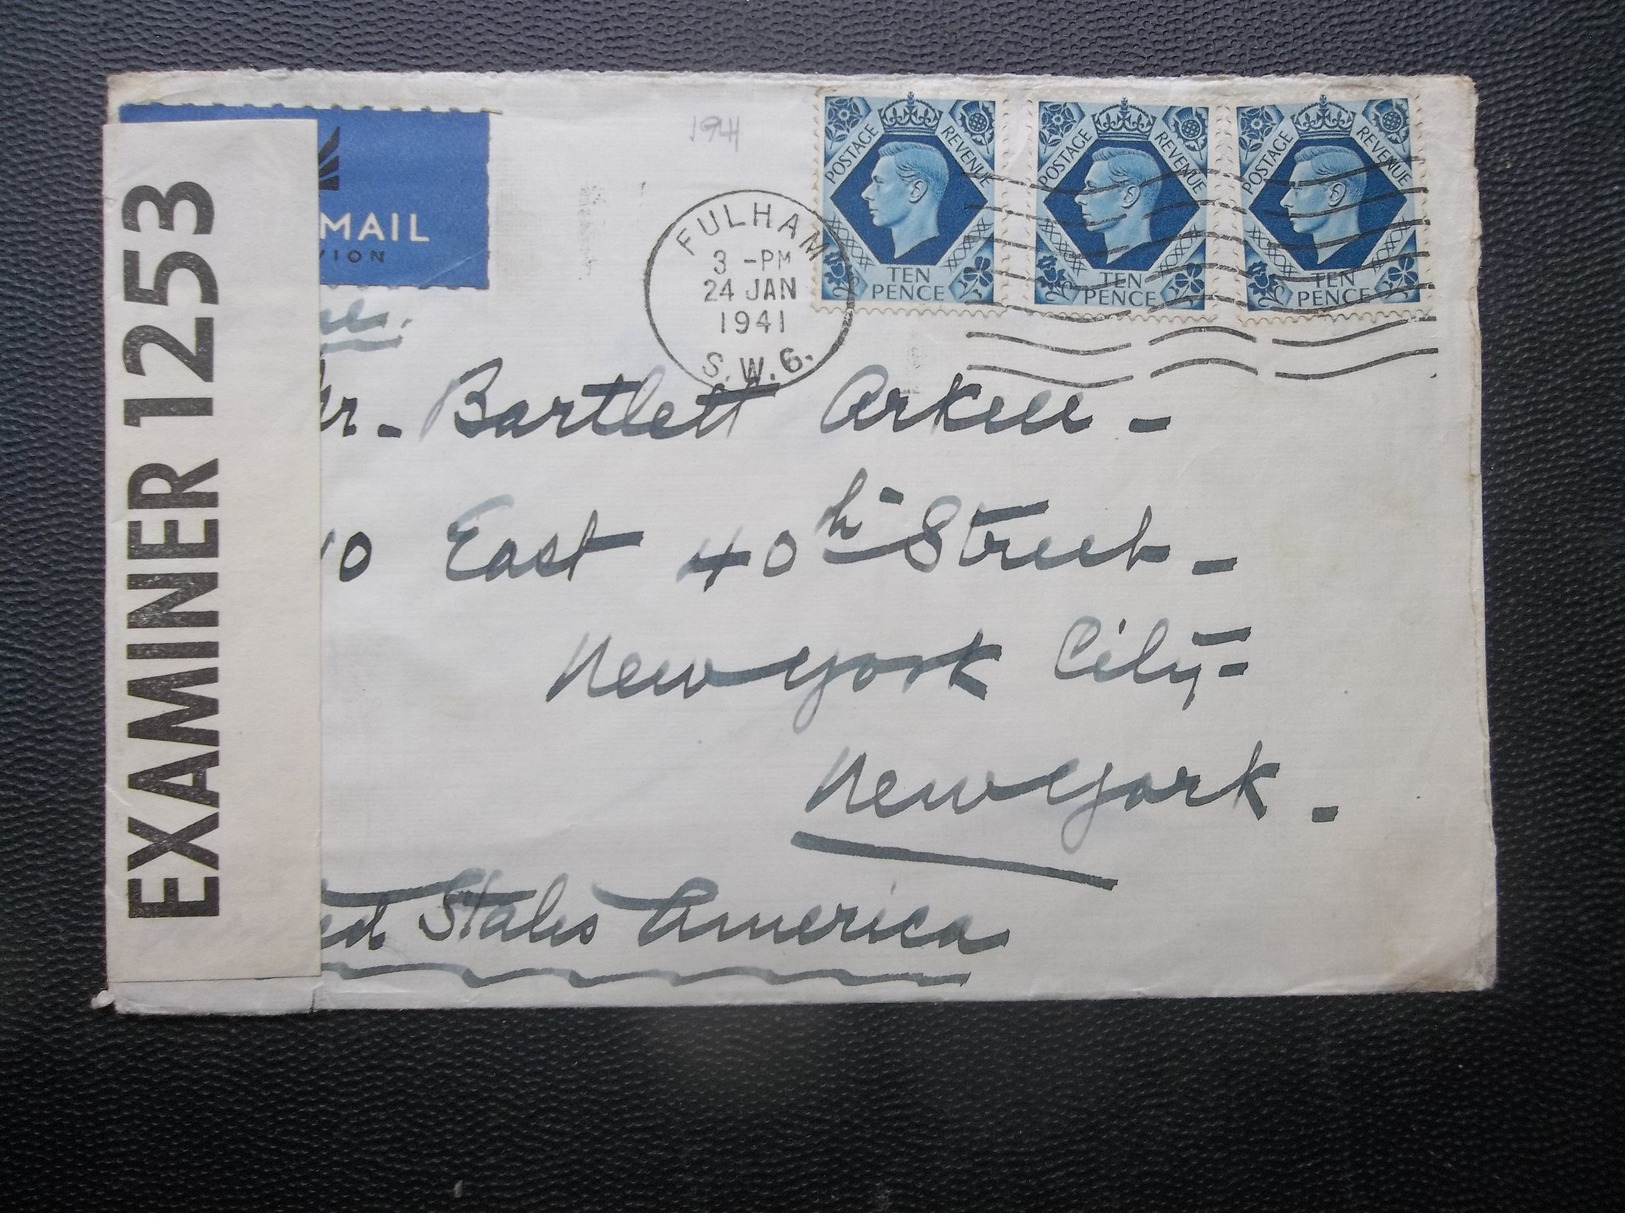 EXAMINER 1253
MAIL
VION
1941
FULHAM
3 -PM
24 JAN
1941
S.W.6.
POSTAGE REVENUE
TEN
PENCE
POSTAGE REVENUE
TEN
PENCE
POSTAGE REVENUE
TEN
PENCE
Mr. Bartlett Arkell -
10 East 40th Street -
New York City -
New York -
ed States America